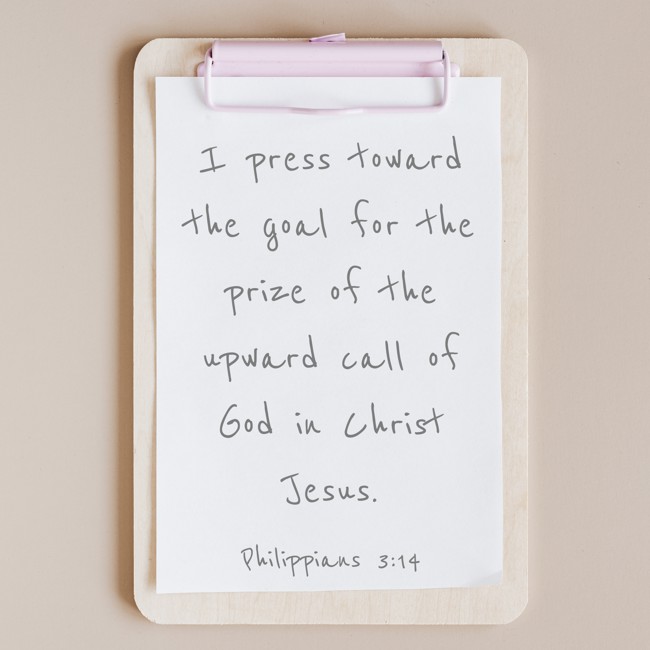 I press toward
the goal for the
prize of the
upward call of
God in Christ
Jesus.
Philippians 3:14